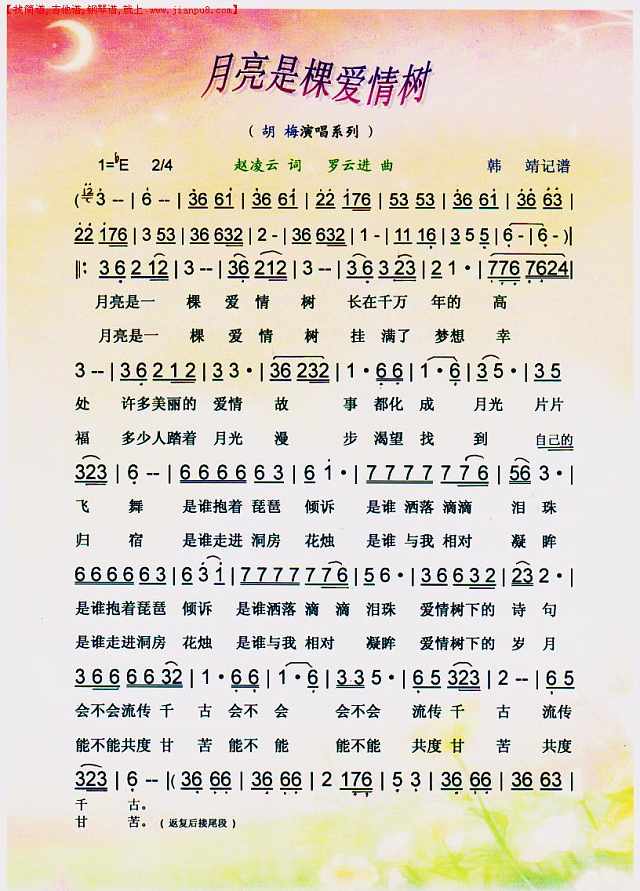 【找简谱,吉他谱,钢琴谱,就上 www.jianpu8.com】
月亮是棵爱情树
( 胡 梅演唱系列 )
1=♭E 2/4 赵凌云 词 罗云进 曲 韩 靖记谱
( 3 -- | 6 -- | 36 61 | 36 61 | 22 176 | 53 53 | 36 61 | 36 63 |
22 176 | 3 53 | 36 632 | 2 - | 36 632 | 1 - | 11 16 | 3 5 5 | 6 - | 6 - )|
‖: 3 6 2 12 | 3 -- | 36 212 | 3 -- | 3 6 3 23 | 2 1 · | 776 7624 |
月亮是一 棵 爱 情 树 长在千万 年的 高
月亮是一 棵 爱 情 树 挂 满了 梦想 幸
3 -- | 3 6 2 1 2 | 3 3 · | 36 232 | 1 · 6 6 | 1 · 6 | 3 5 · | 3 5
处 许多美丽的 爱情 故 事 都化 成 月光 片片
福 多少人踏着 月光 漫 步 渴望 找 到 自己的
323 | 6 -- | 6 6 6 6 6 3 | 6 1 · | 7 7 7 7 7 7 6 | 56 3 · |
飞 舞 是谁抱着 琵琶 倾诉 是谁 洒落 滴滴 泪 珠
归 宿 是谁走进 洞房 花烛 是谁 与我 相对 凝 眸
6 6 6 6 6 3 | 6 3 1 | 7 7 7 7 7 6 | 5 6 · | 3 6 6 6 3 2 | 23 2 · |
是谁抱着琵琶 倾诉 是谁洒落 滴 滴 泪珠 爱情树下的 诗 句
是谁走进洞房 花烛 是谁与我 相对 凝眸 爱情树下的 岁 月
3 6 6 6 6 32 | 2 1 · | 1 · 6 6 | 1 · 6 | 3 3 5 · | 6 5 323 | 2 -- | 6 5
会不会流传 千 古 会不 会 会不会 流传 千 古 流传
能不能共度 甘 苦 能不 能 能不能 共度 甘 苦 共度
323 | 6 -- |( 36 66 | 36 66 | 2 176 | 5 3 | 36 66 | 36 66 | 36 63 |
千 古。
甘 苦。 ( 返复后接尾段 )